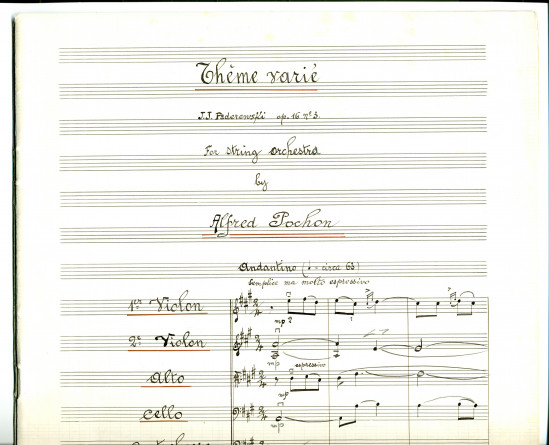 Thême varié
J.J. Paderewski op. 16 nº 3.
For string orchestra
by
Alfred Pochon
Andantino (♩ = circa 63)
Semplice ma molto espressivo
1er Violon
mp 2
2e Violon
mp espressivo
Alto
mp
Cello
mp